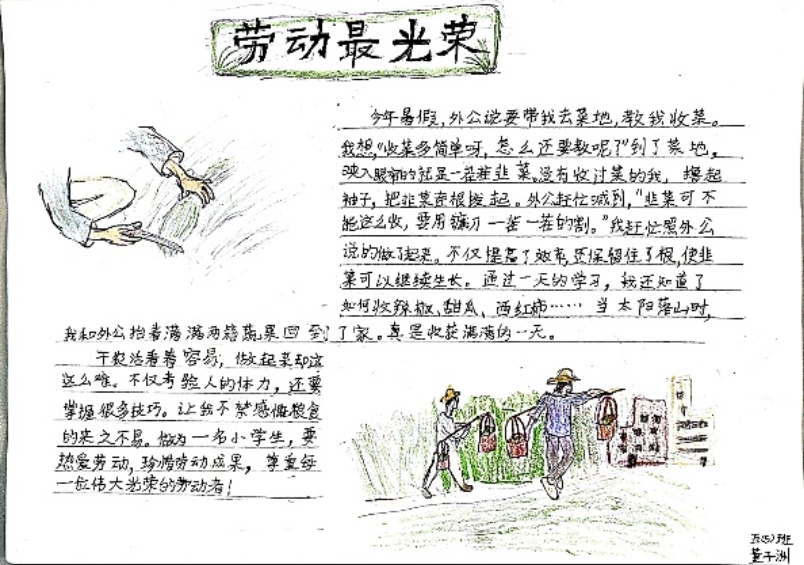 劳动最光荣
今年暑假,外公说要带我去菜地,教我收菜。
我想,"收菜多简单呀,怎么还要教呢?"到了菜地,
映入眼帘的就是一茬茬韭菜。没有收过菜的我,撸起
袖子,把韭菜连根拔起。外公赶忙喊到,"韭菜可不
能这么收,要用镰刀一茬一茬的割。"我赶忙照外公
说的做了起来。不仅提高了效率,还保留住了根,使韭
菜可以继续生长。通过一天的学习,我还知道了
如何收辣椒、甜瓜、西红柿……当太阳落山时,
我和外公抬着满满两箱蔬果回到了家。真是收获满满的一天。
干农活看着容易,做起来却这
么难。不仅考验人的体力,还要
掌握很多技巧。让我不禁感慨粮食
的来之不易。做为一名小学生,要
热爱劳动,珍惜劳动成果,尊重每
一位伟大光荣的劳动者!
五(5)班
董千洲